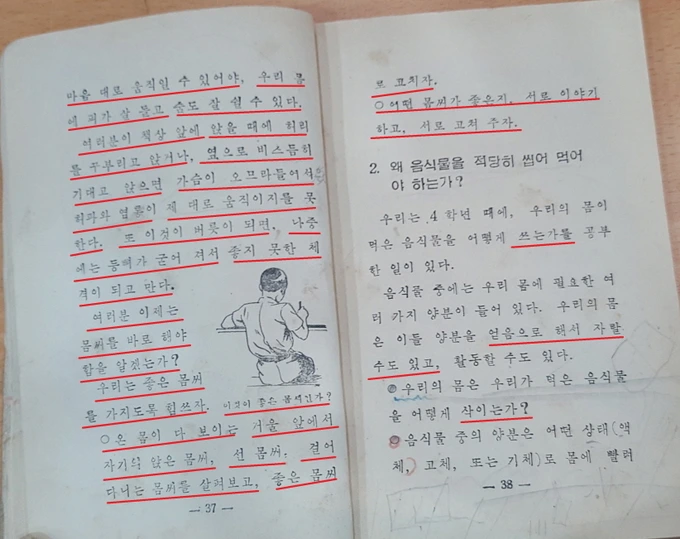 마음 대로 움직일 수 있어야, 우리 몸
에 피가 잘 돌고 숨도 잘 쉴 수 있다.
여러분이 책상 앞에 앉을 때에 허리
를 꾸부리고 앉거나, 옆으로 비스듬히
기대고 앉으면 가슴이 오므라들어서
허파와 염통이 제 대로 움직이지를 못
한다. 또 이것이 버릇이 되면, 나중
에는 등뼈가 굳어 져서 좋지 못한 체
격이 되고 만다.
여러분 이제는
몸씨를 바로 해야
함을 알겠는가?
우리는 좋은 몸씨
를 가지도록 힘쓰자. 이것이 좋은 몸씨인가?
○온 몸이 다 보이는 거울 앞에서
자기의 앉은 몸씨, 선 몸씨, 걸어
다니는 몸씨를 살펴보고, 좋은 몸씨
— 37 —
로 고치자.
○어떤 몸씨가 좋은지, 서로 이야기
하고, 서로 고쳐 주자.
2. 왜 음식물을 적당히 씹어 먹어
야 하는가?
우리는 4 학년 때에, 우리의 몸이
먹은 음식물을 어떻게 쓰는가를 공부
한 일이 있다.
음식물 중에는 우리 몸에 필요한 여
러 가지 양분이 들어 있다. 우리의 몸
은 이들 양분을 얻음으로 해서 자랄
수도 있고, 활동할 수도 있다.
○우리의 몸은 우리가 먹은 음식물
을 어떻게 삭이는가?
○음식물 중의 양분은 어떤 상태(액
체, 고체, 또는 기체)로 몸에 빨려
— 38 —